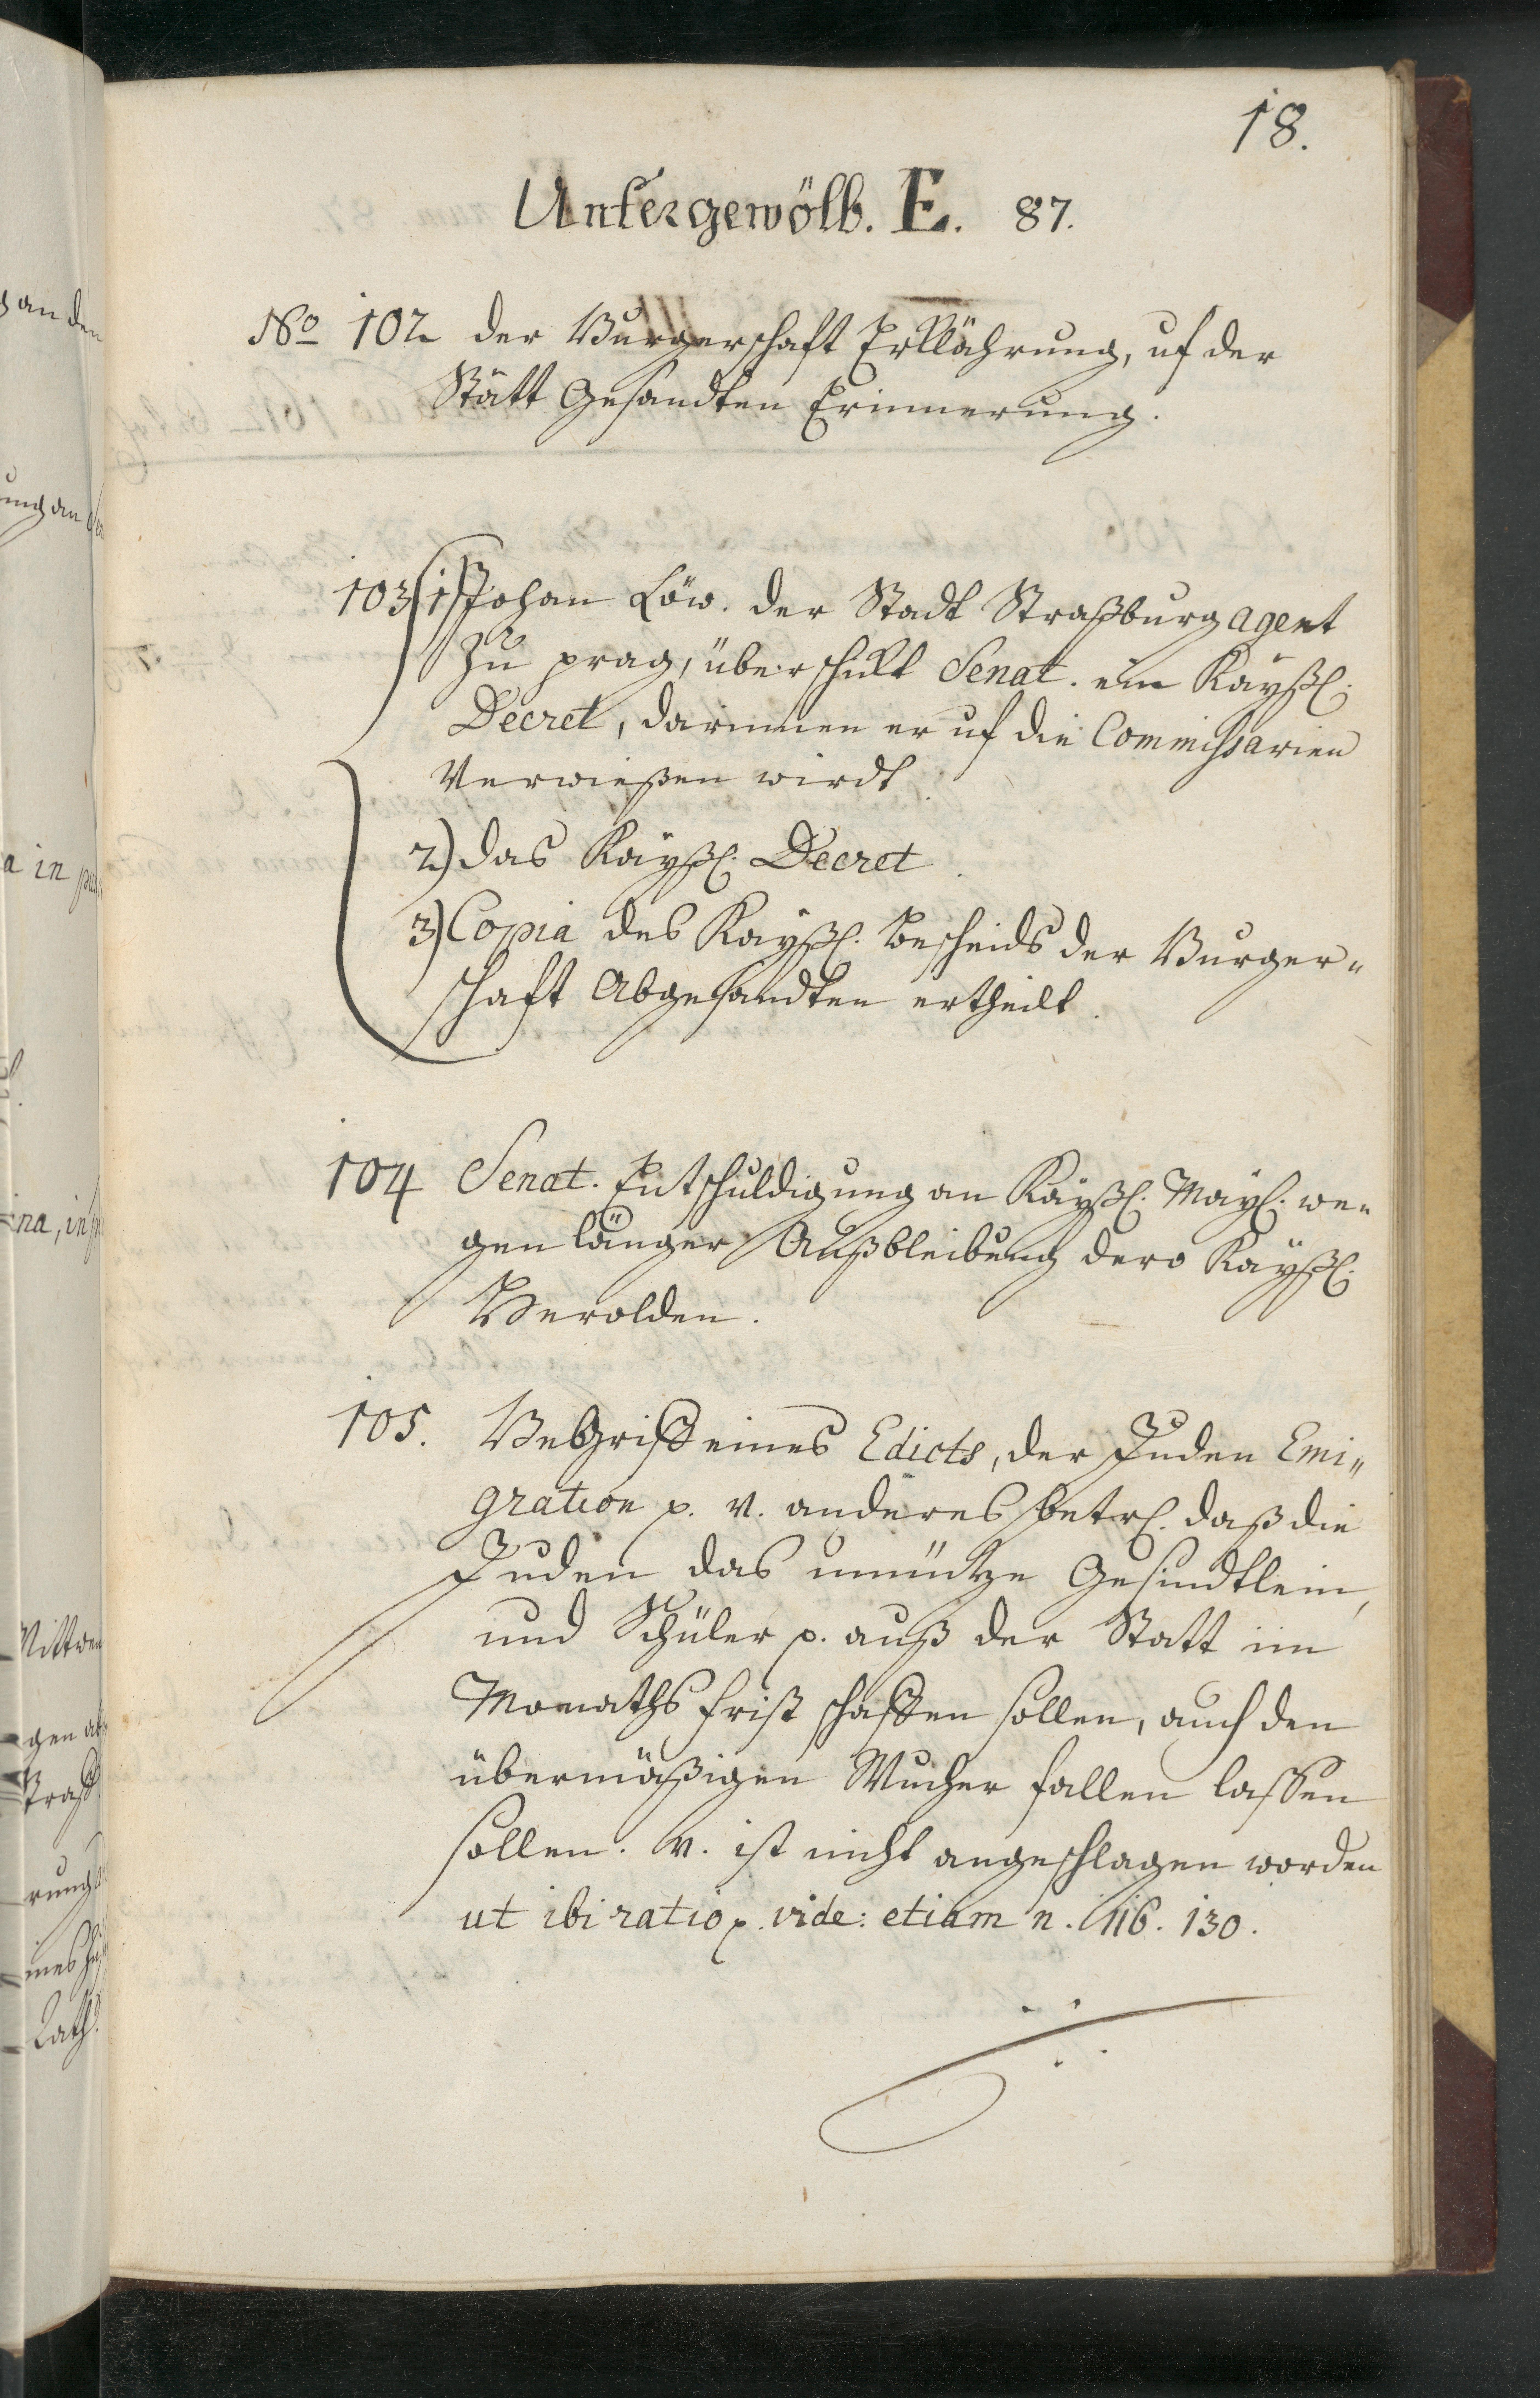 18.
Untergewölb. E. 87.
No 102 der Burgerschafft Erklährung, uf der
Stätt Gesandten Erinnerung.
103 1) Johan Löw. der Stadt Straßburg agent
zu prag, überschickt Senat. ein Kayßl.
Decret, darinnen er uf die Commissarien
Verwießen wirdt.
2) das Kayßl. Decret.
3) Copia des Kayßl. Bescheids der Burger-
schafft Abgesandten ertheilt.
104 Senat. Entschuldigung an Kayßl. May. we-
gen länger Außbleibung dero Kayßl.
Herolden.
105. Begriff eines Edicts, der Juden Emi-
gration p. v. anderes betrl. daß die
Juden das unnütze Gesindtlein,
und Schüler p. auß der Statt im
Monaths frist schaffen sollen, auch den
übermäßigen Wucher fallen lassen
sollen. v. ist nicht angeschlagen worden
ut ibi ratio p. vide: etiam n. 116. 130.